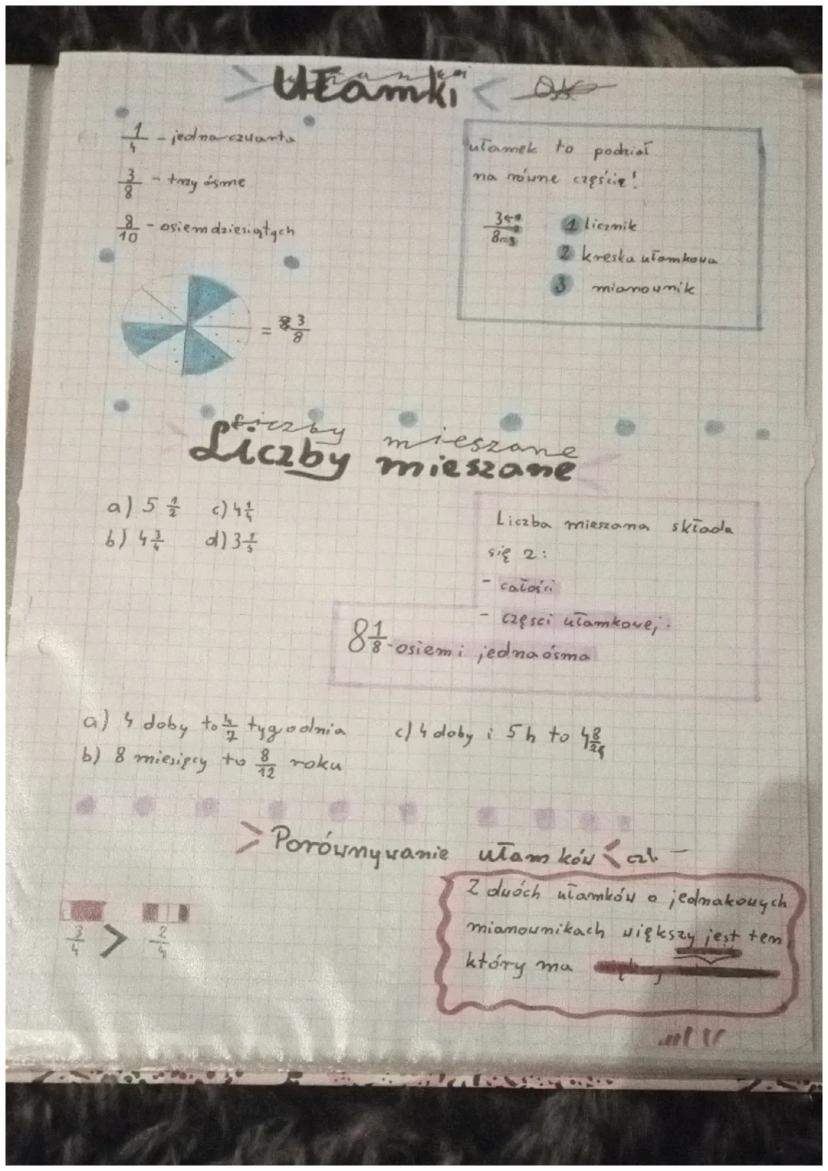 Ułamki
1/4 - jedna czwarta
3/8 - trzy ósme
8/10 - osiem dziesiątych
= 3/8
ułamek to podział
na równe częście!
3/8
1 licznik
2 kreska ułamkowa
3 mianownik
Liczby mieszane
Liczby mieszane
a) 5 1/2 c) 4 1/4
b) 4 3/4 d) 3 1/5
Liczba mieszana składa
się z:
- całości
- części ułamkowej.
8 1/8 - osiem i jedna ósma
a) 4 doby to 4/7 tygodnia c) 4 doby i 5 h to
b) 8 miesięcy to 8/12 roku
> Porównywanie ułamków < cz.
3/4 > 2/4
Z dwóch ułamków o jednakowych
mianownikach większy jest ten,
który ma